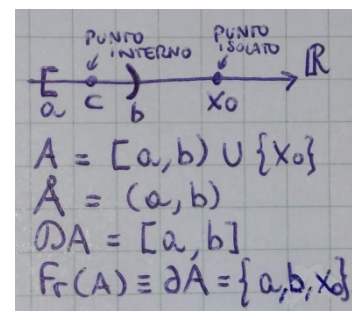 PUNTO INTERNO PUNTO ISOLATO
[ a c ) b x₀ ℝ
A = [a,b) ∪ {x₀}
Å = (a,b)
𝒟A = [a,b]
Fr(A) ≡ ∂A = {a,b,x₀}